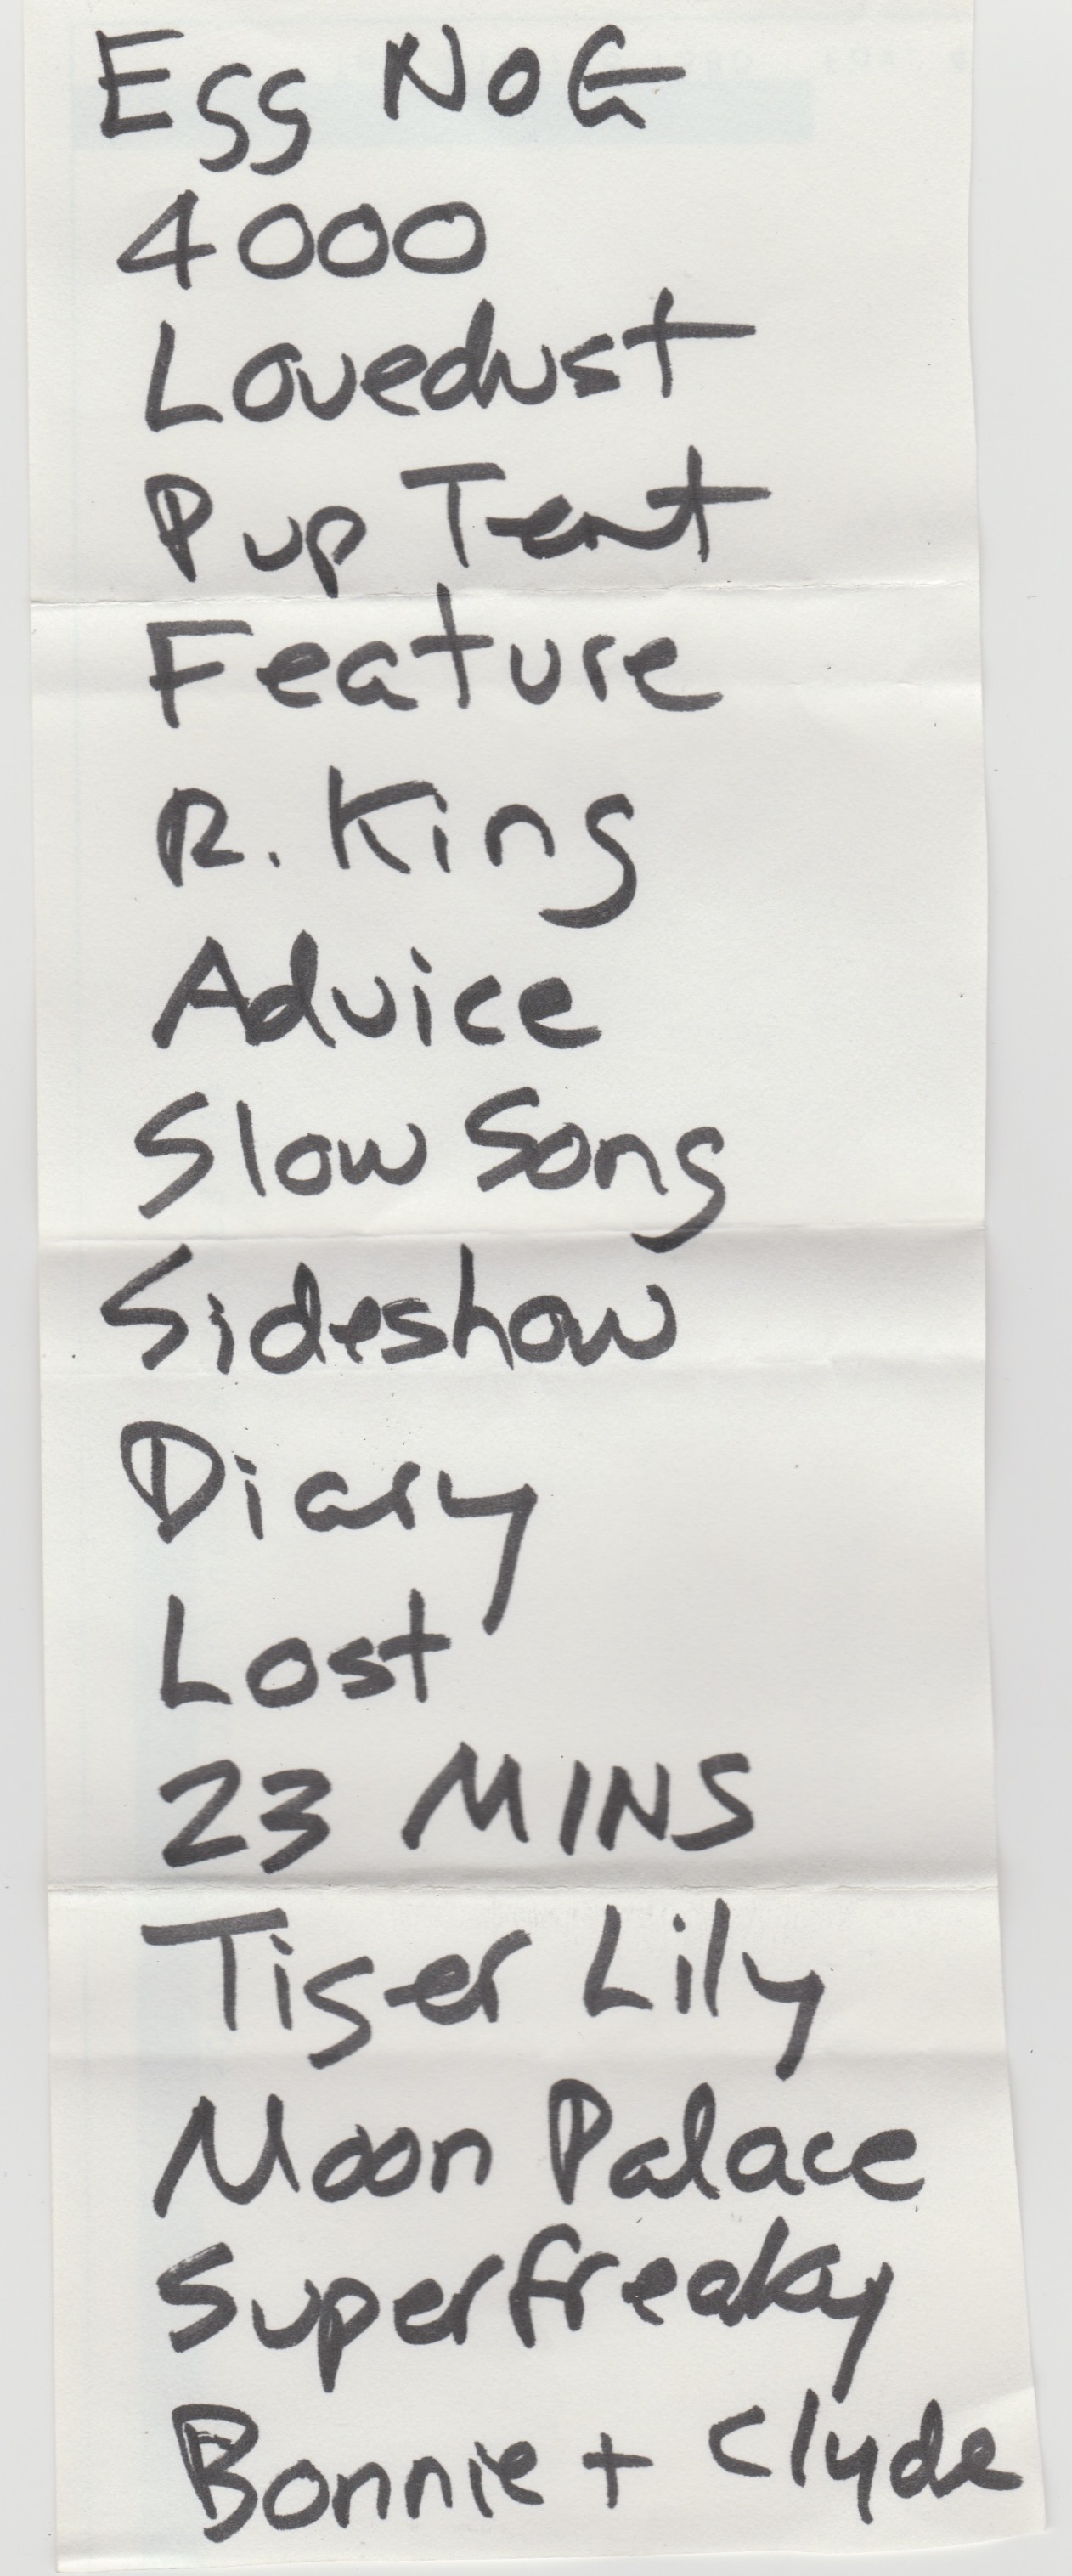 Egg NOG
4000
Lovedust
Pup Tent
Feature
R. King
Advice
Slow Song
Sideshow
Diary
Lost
23 MINS
Tiger Lily
Moon Palace
Superfreaky
Bonnie + Clyde